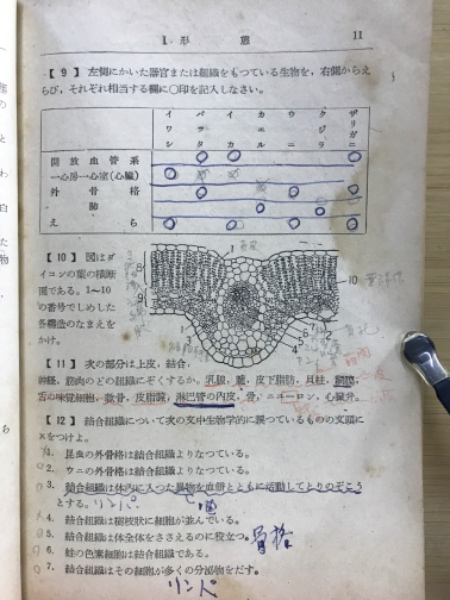 I. 形 態 11
【9】 左側にかいた器官または組織をもつている生物を，右側からえ
らび，それぞれ相当する欄に○印を記入しなさい。
イワシ バッタ イカ カエル ウニ クジラ ザリガニ
開放血管系
一心房一心室(心臓)
外骨格
肺
えら
【10】 図はダ
イコンの葉の横断
面である。1〜10
の番号でしめした
各構造のなまえを
かけ。
【11】 次の部分は上皮，結合，
神経，筋肉のどの組織にぞくするか。乳腺，腱，皮下脂肪，貝柱，
舌の味覚細胞，軟骨，皮脂腺，淋巴管の内皮，骨，ニューロン，心臓弁。
【12】 結合組織について次の文中生物学的に誤つているものの文頭に
×をつけよ。
1. 昆虫の外骨格は結合組織よりなつている。
2. ウニの外骨格は結合組織よりなつている。
3. 結合組織は体内に入つた異物を血餅とともに活動してとりのぞこう
とする。リンパ 菌
4. 結合組織は樹枝状に細胞が並んでいる。
5. 結合組織は体全体をささえるのに役立つ。骨格
6. 蛙の色素細胞は結合組織である。
7. 結合組織はその細胞が多くの分泌物をだす。
リンパ